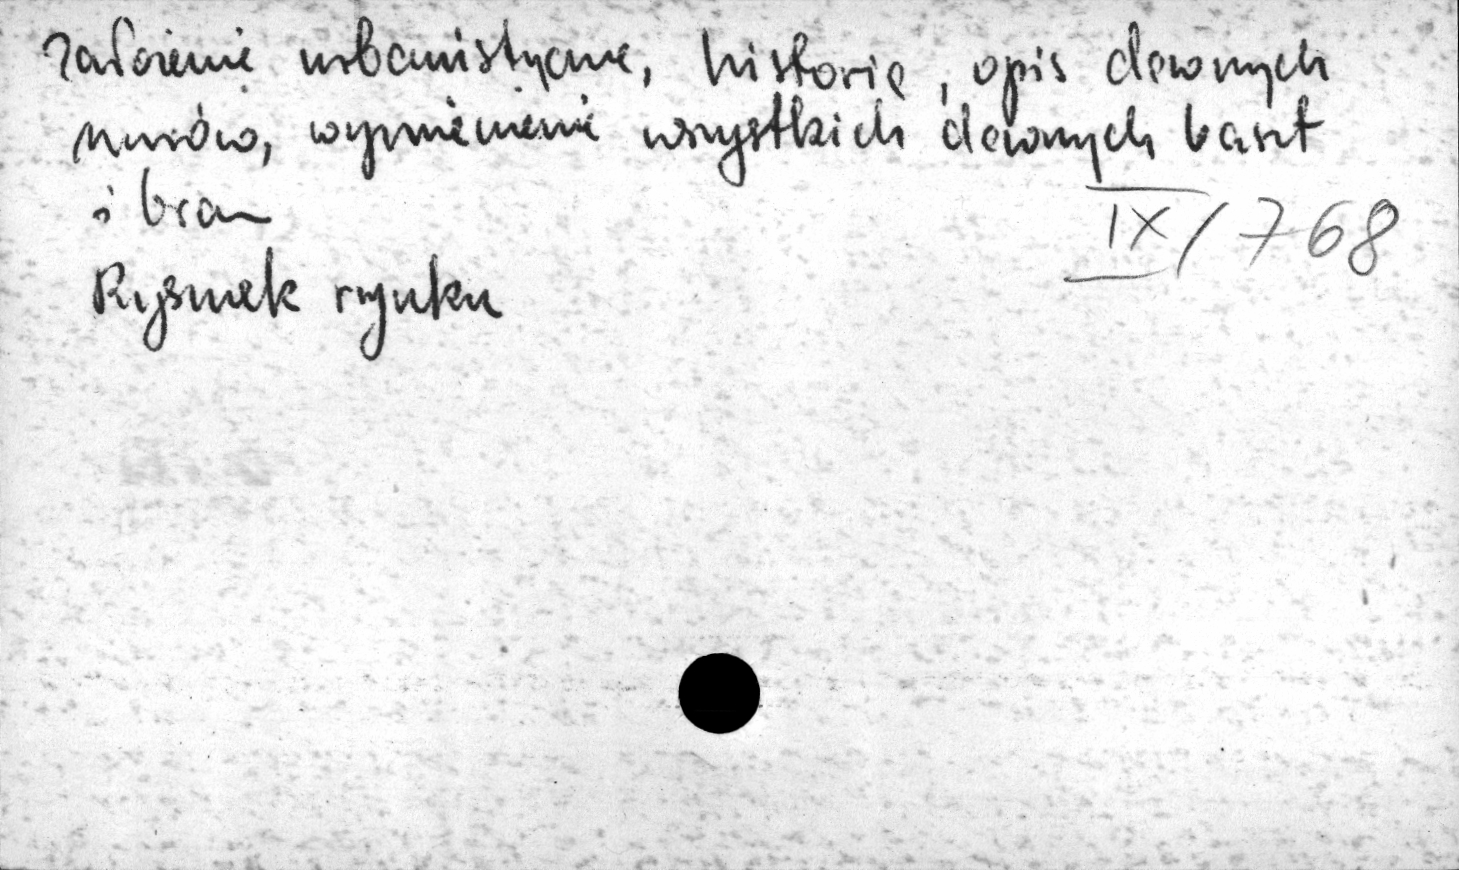 Założenie urbanistyczne, historię, opis dawnych
murów, wymienienie wszystkich dawnych baszt
i bram
IX/768
Rysunek rynku